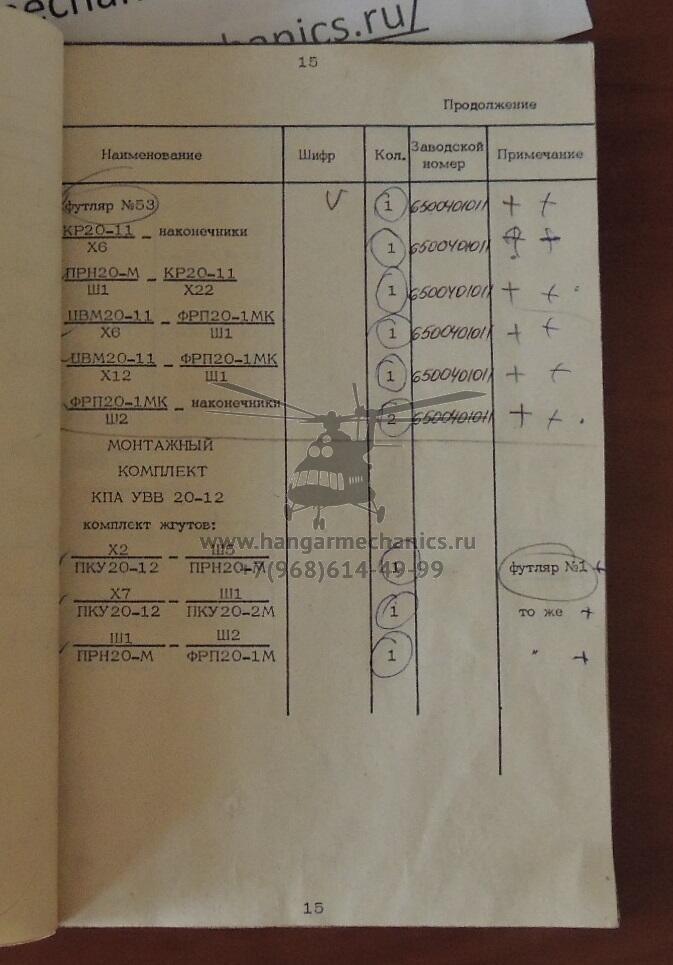 echan
chanics.ru/
15
Продолжение
Наименование Шифр Кол. Заводской номер Примечание
футляр №53 V 1 6500401011 + +
КР20-11 - наконечники 1 6500401011 +
Х6
ПРН20-М - КР20-11 1 6500401011 + +
Ш1 Х22
ЦВМ20-11 - ФРП20-1МК 1 6500401011 + +
Х6 Ш1
ЦВМ20-11 - ФРП20-1МК 1 6500401011 + +
Х12 Ш1
ФРП20-1МК - наконечники 2 6500401011 + +
Ш2
МОНТАЖНЫЙ
КОМПЛЕКТ
КПА УВВ 20-12
комплект жгутов:
www.hangarmechanics.ru
7(968)614-49-99
Х2 - Ш5 1 футляр №1 +
ПКУ20-12 ПРН20-М
Х7 - Ш1 1 то же +
ПКУ20-12 ПКУ20-2М
Ш1 - Ш2 1 " +
ПРН20-М ФРП20-1М
15